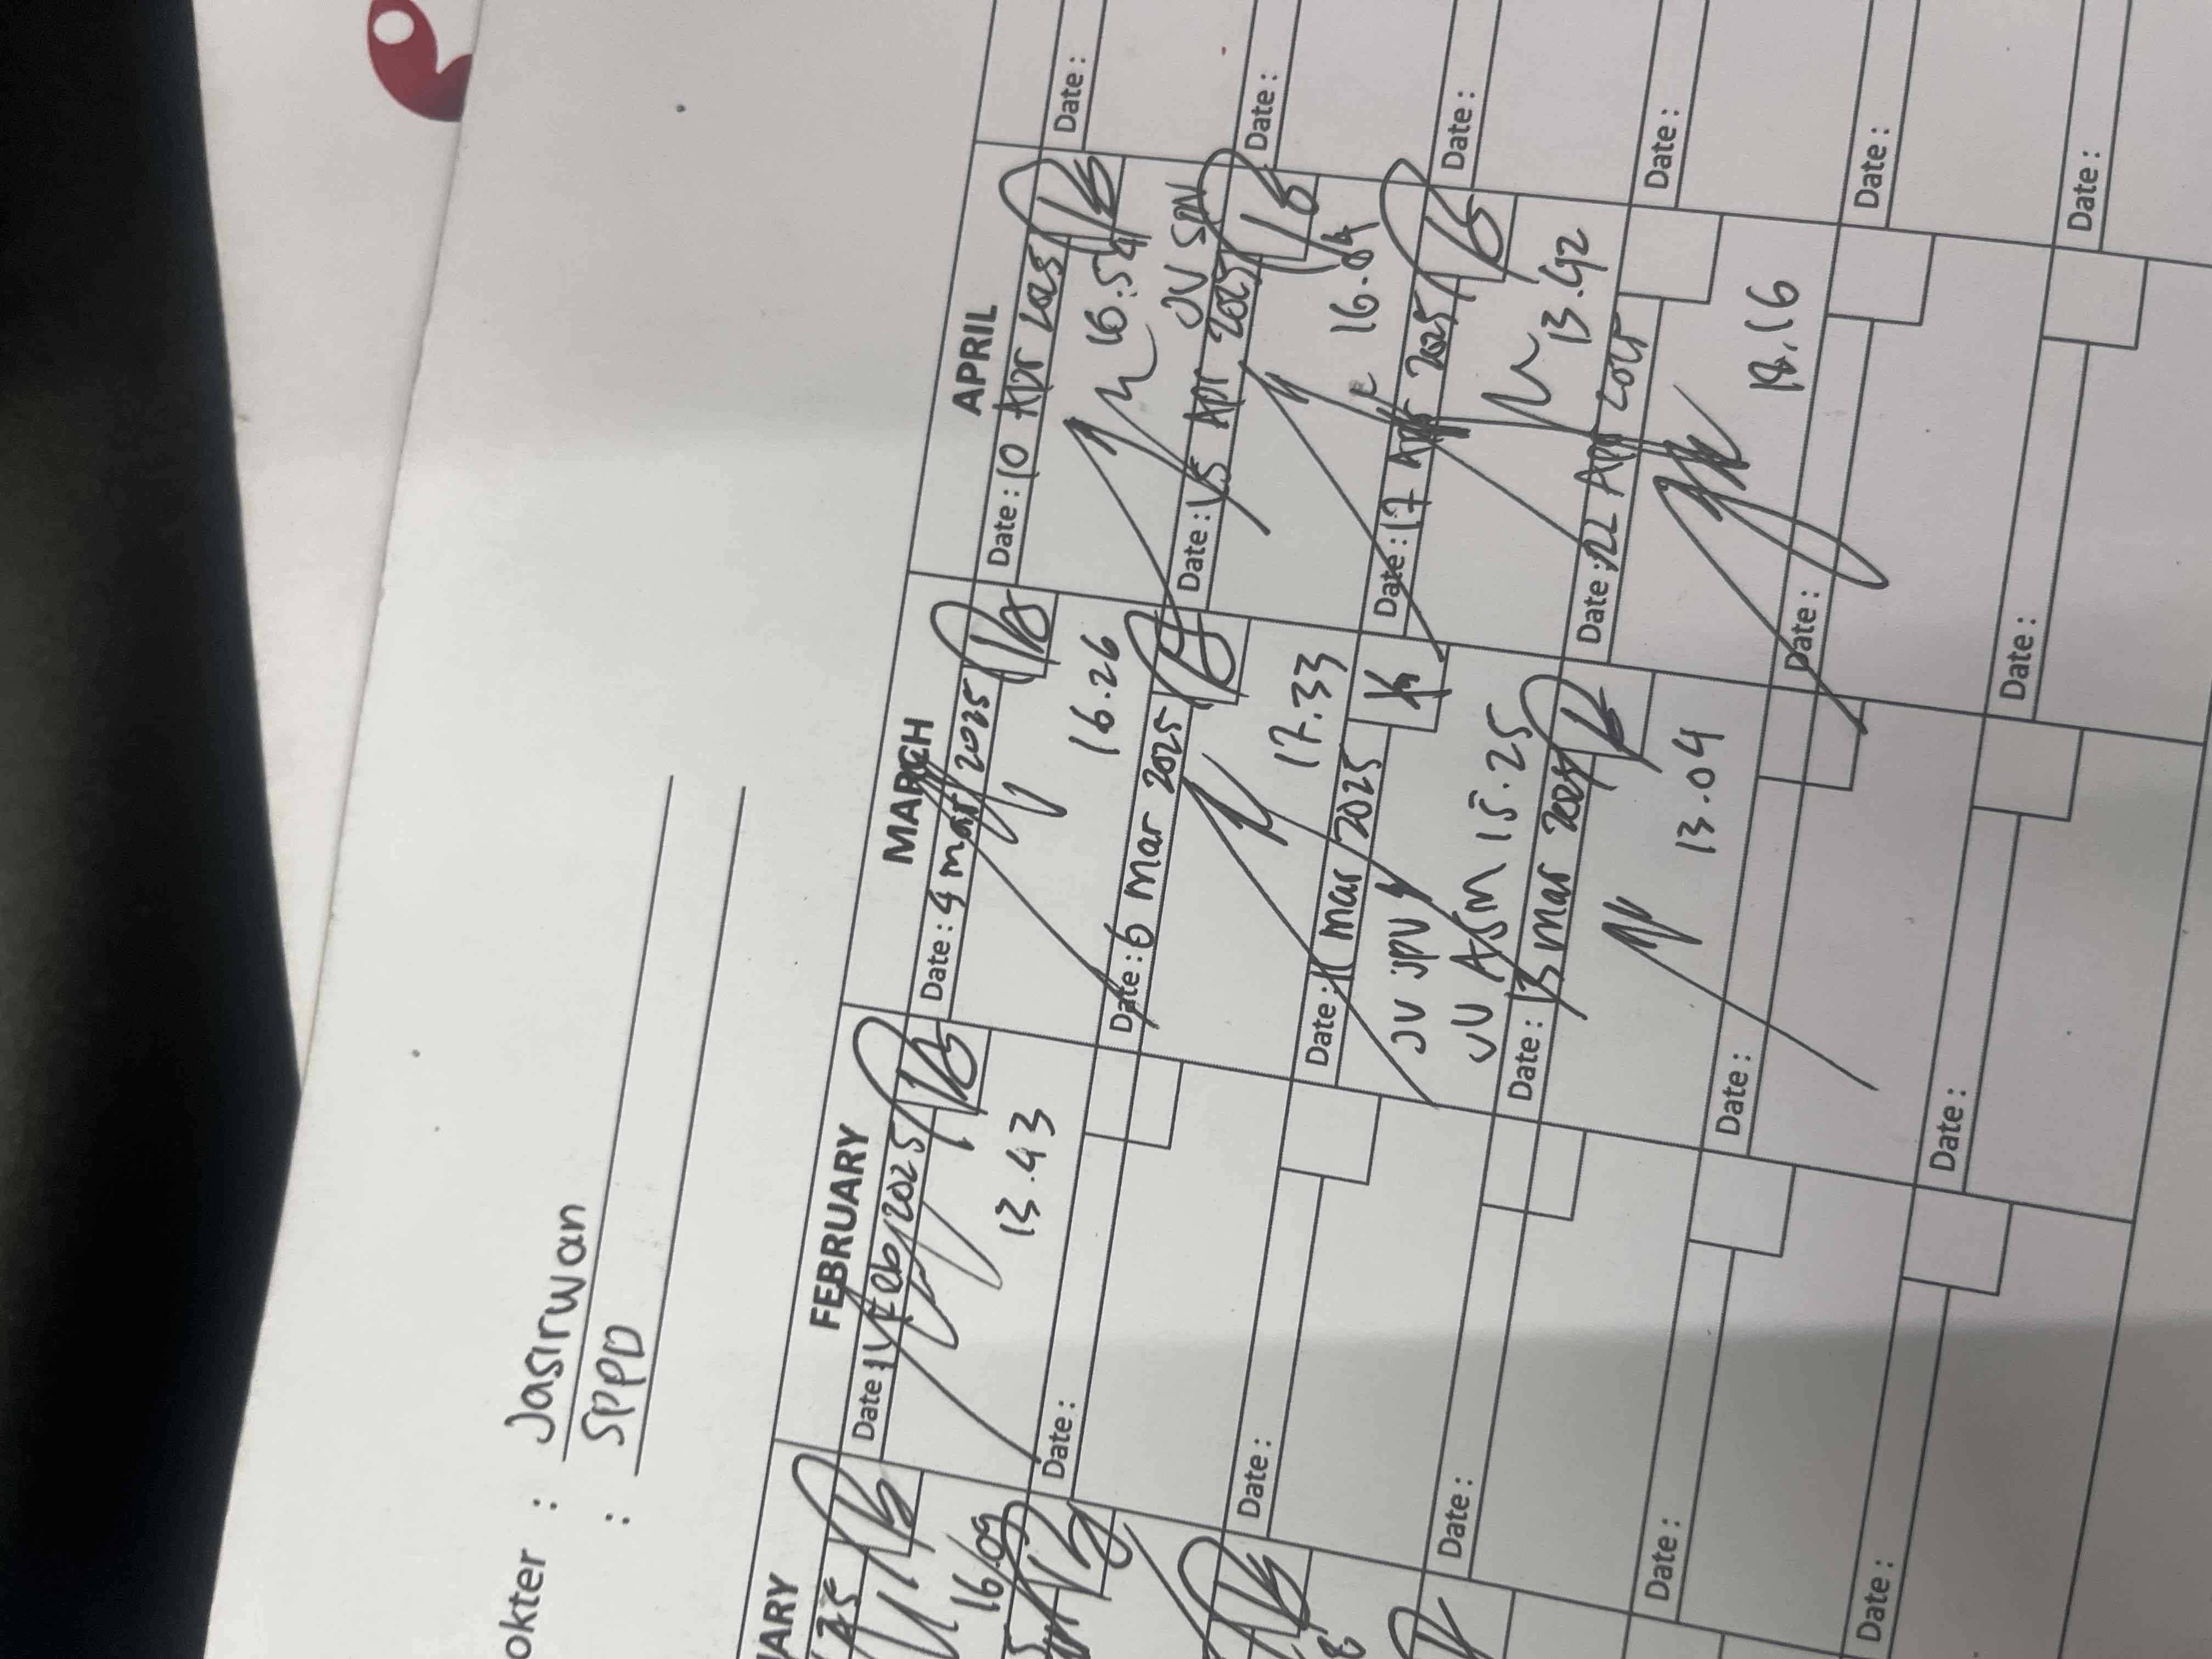 okter : Jasirwan
: SPPD
FEBRUARY MARCH APRIL
16.09
Date : Feb 2025
13.43
Date :
Date :
Date :
Date :
Date :
Date : 4 mar 2025
16.26
Date : 6 Mar 2025
17.33
Date : 11 mar 2025
JV SPV
JV ASM 15.25
Date : 13 mar 2025
13.04
Date :
Date :
Date : 10 Apr 2025
16.54
JV SPV
Date : 15 Apr 2025
16.04
Date : 17 Apr 2025
13.42
Date : 22 Apr 2025
18.16
Date :
Date :
Date :
Date :
Date :
Date :
Date :
Date :